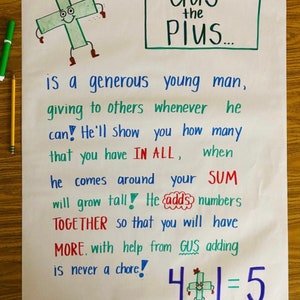 Gus
the
Plus...
is a generous young man,
giving to others whenever he
can! He'll show you how many
that you have IN ALL, when
he comes around your SUM
will grow tall! He adds numbers
TOGETHER so that you will have
MORE. with help from GUS adding
is never a chore!
4 + 1 = 5